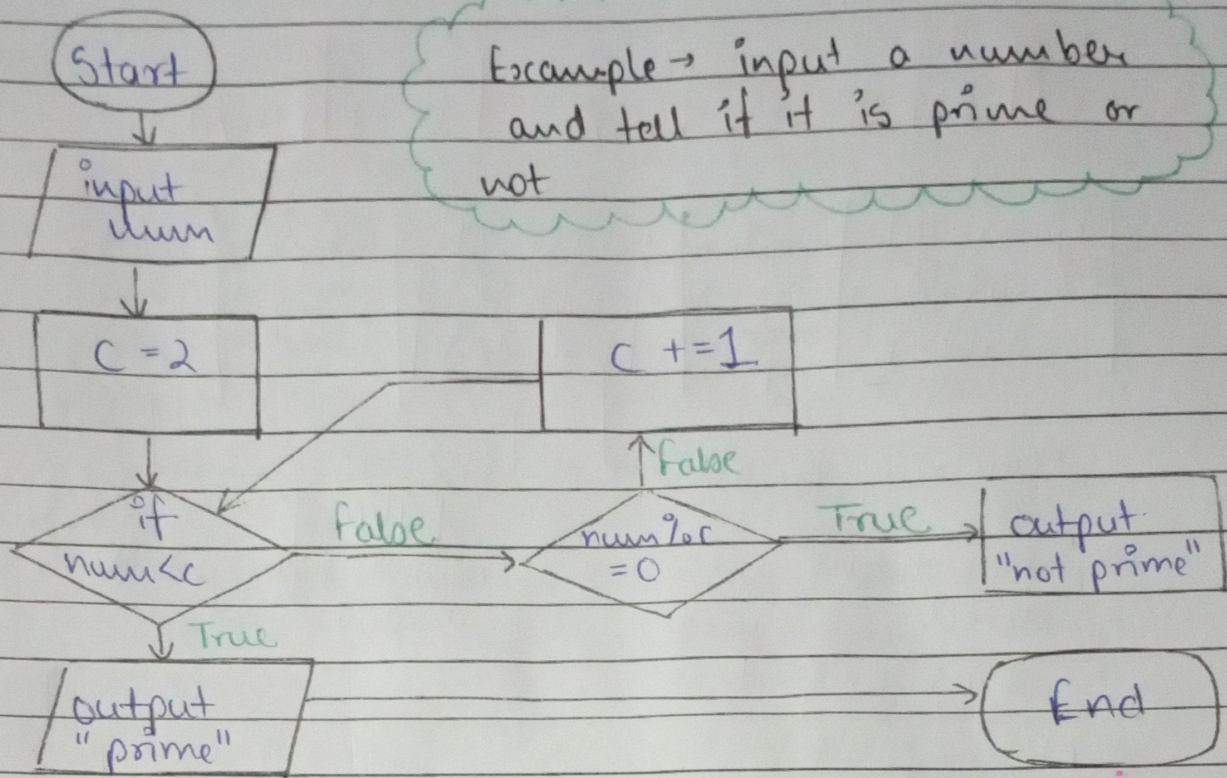 Start
Example → input a number
and tell if it is prime or
not
input
num
C = 2
C += 1
False
if
num<c
False
num%c
=0
True
output
"not prime"
True
output
"prime"
End